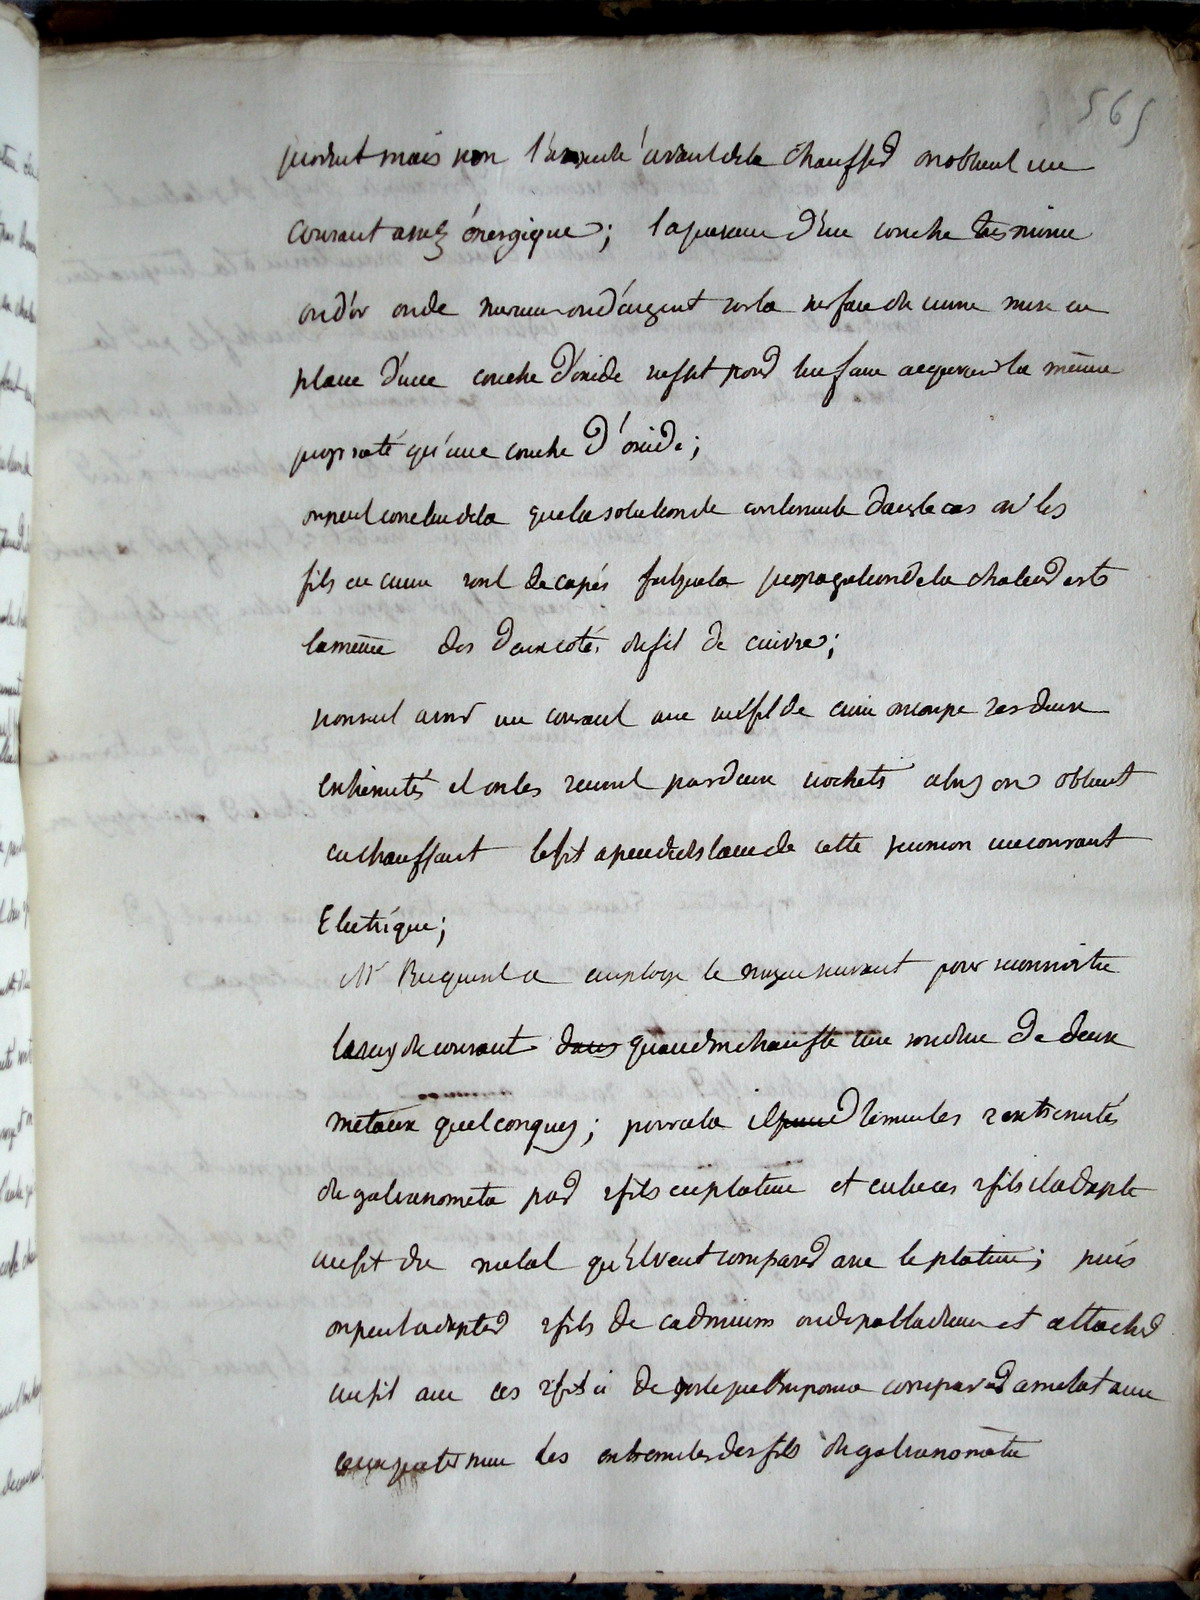 565
produit mais non l'          avant de la chauffer on obtient un
courant assez énergique; la presence d'une couche tres mince
ou d'or ou de mercure ou d'argent sur la surface du cuivre mise en
place d'une couche d'oxide suffit pour lui faire acquerir la même
propriété qu'une couche d'oxide;
on peut conclure de la que la solution de continuité dans le cas où les
fils en cuivre sont decapés fait que la propagation de la chaleur est
la même des deux cotés du fil de cuivre;
       un courant avec un fil de cuivre on coupe ses deux
extrémités et on les reunit par deux crochets alors on obtient
en chauffant le fil a peu de distance de cette reunion un courant
Electrique;
Mr Becquerel a employé le moyen suivant pour reconnoitre
le sens du courant dans quand on chauffe une soudure de deux
métaux quelconques; pour cela il       les 2 extremités
du galvanometre par 2 fils en platine et entre ces 2 fils il adapte
un fil du metal qu'il veut comparer avec le platine; puis
on peut adapter 2 fils de cadmium ou de palladium et attacher
un fil avec ces 2 fils ci de       comparer       avec
      les extremités des fils du galvanomètre